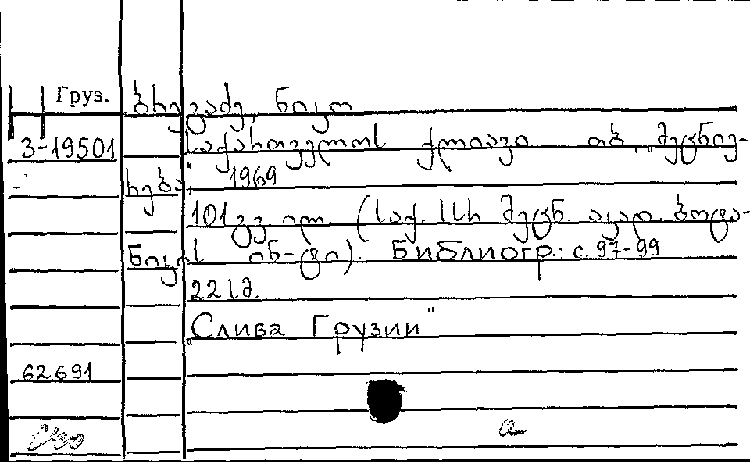 Груз.
ბრეგაძე, ნიკო
3-19501 საქართველოს ქლიავი თბ., „მეცნიე-
რება“, 1969
101 გვ. ილ (საქ. სსრ მეცნ. აკად. ბოტა-
ნიკის ინ-ტი). Библиогр.: с. 97-99
22 სმ.
„Слива Грузии"
62691
а